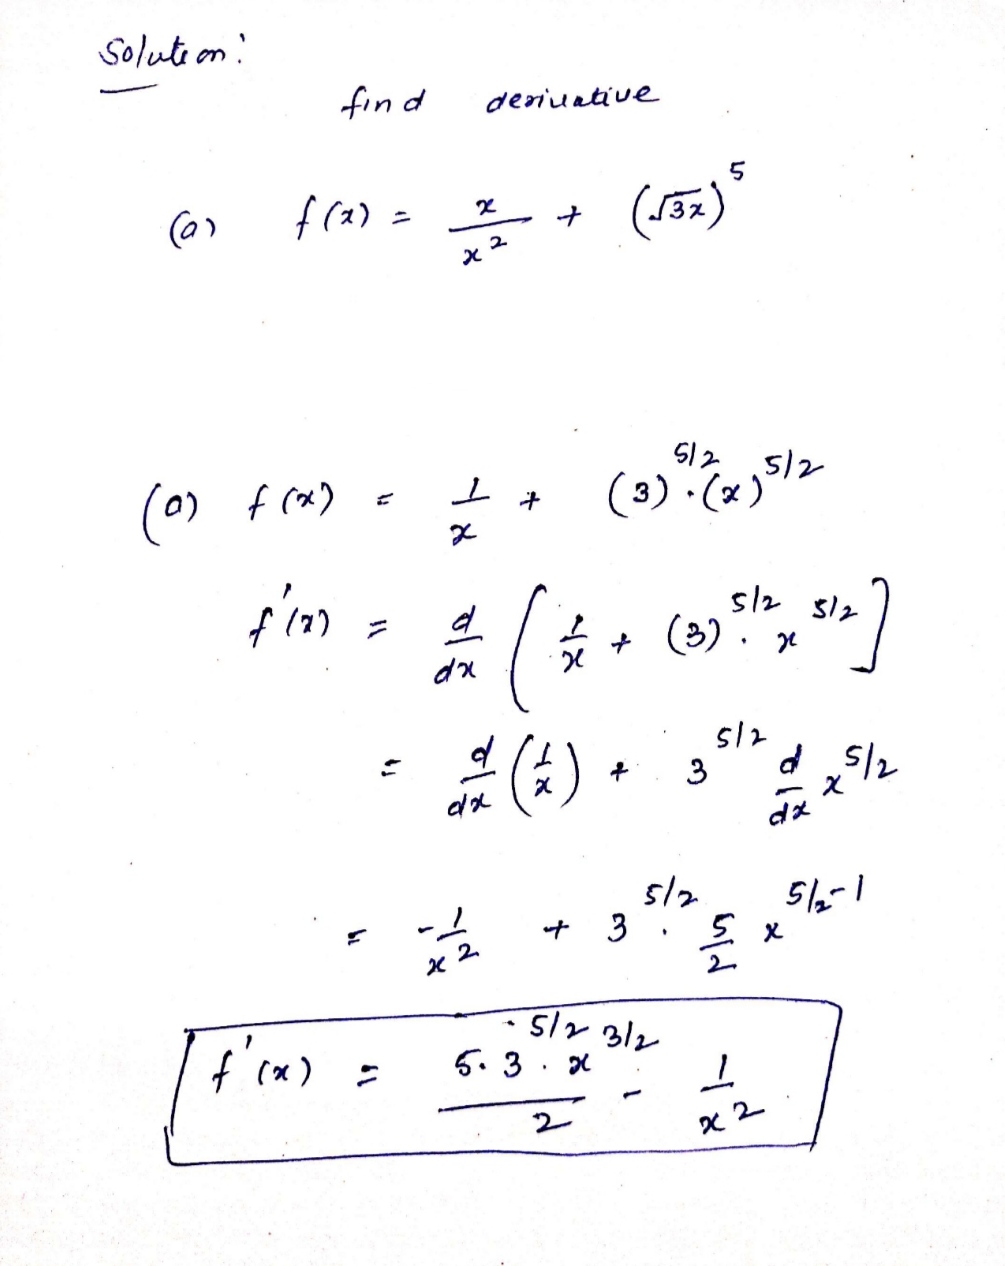 Solution:
find derivative
(a) f(x) = x/x² + (√3x)⁵
(a) f(x) = 1/x + (3)^5/2 · (x)^5/2
f'(x) = d/dx [1/x + (3)^5/2 · x^5/2]
= d/dx (1/x) + 3^5/2 d/dx x^5/2
= -1/x² + 3^5/2 · 5/2 x^5/2-1
f'(x) = 5·3^5/2 · x^3/2 / 2 - 1/x²